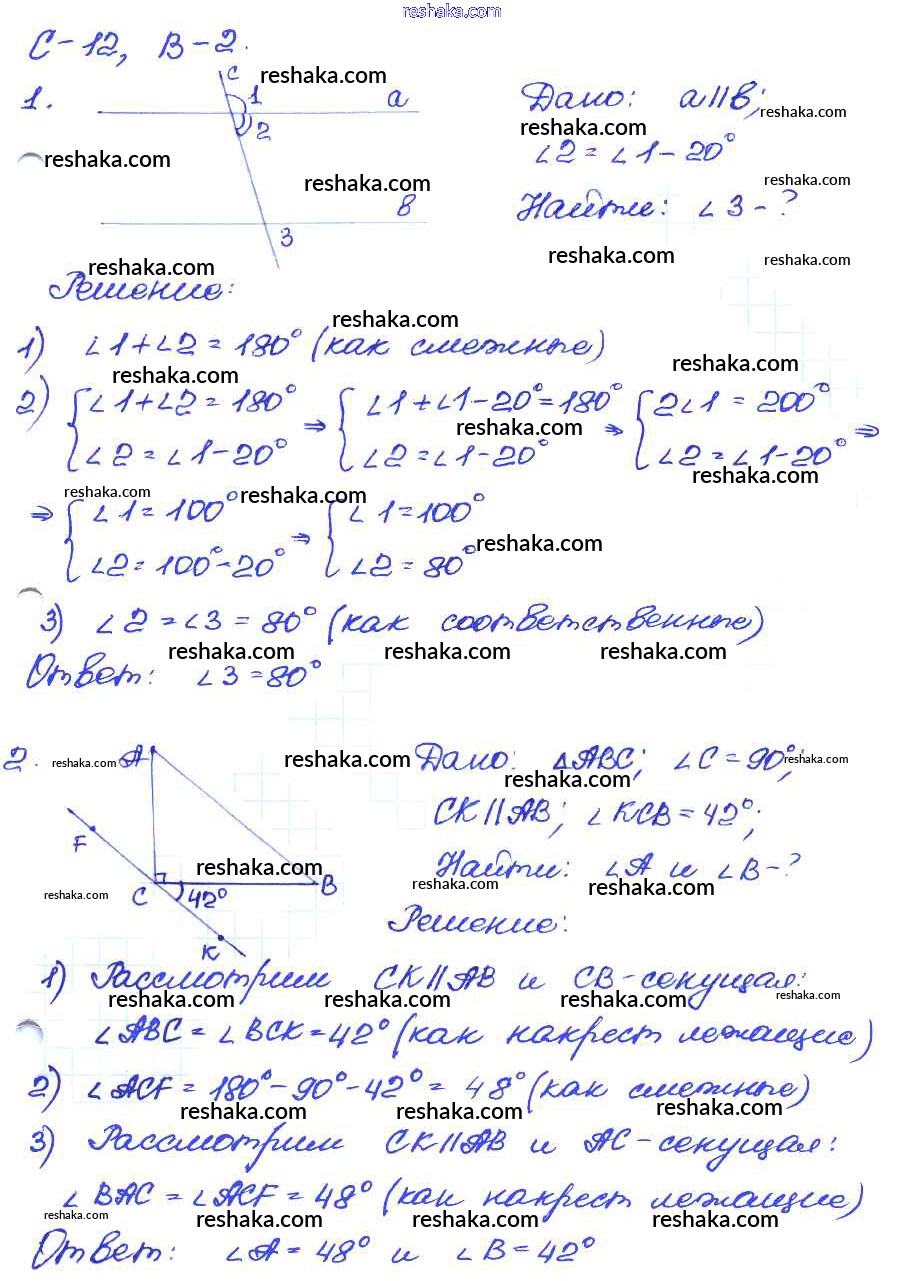 reshaka.com
С-12, В-2.
reshaka.com
1.
c
1
a
2
Дано: a||в;
reshaka.com
reshaka.com
∠2 = ∠1 - 20°
reshaka.com
reshaka.com
reshaka.com
в
3
Найти: ∠3 - ?
reshaka.com
reshaka.com
reshaka.com
Решение:
reshaka.com
1) ∠1 + ∠2 = 180° (как смежные)
reshaka.com
reshaka.com
2) { ∠1 + ∠2 = 180° ⇒ { ∠1 + ∠1 - 20° = 180° ⇒ { 2∠1 = 200° ⇒
reshaka.com
∠2 = ∠1 - 20° ∠2 = ∠1 - 20° ∠2 = ∠1 - 20°
reshaka.com
reshaka.com reshaka.com
⇒ { ∠1 = 100° ⇒ { ∠1 = 100°
reshaka.com
∠2 = 100° - 20° ∠2 = 80°
3) ∠2 = ∠3 = 80° (как соответственные)
reshaka.com reshaka.com reshaka.com
Ответ: ∠3 = 80°
2. reshaka.com A reshaka.com
Дано: △ABC; ∠C = 90°;
reshaka.com
reshaka.com
CK || AB; ∠KCB = 42°;
F
reshaka.com
Найти: ∠A и ∠B - ?
reshaka.com
reshaka.com
reshaka.com
C 42° B
K
Решение:
1) Рассмотрим CK || AB и CB - секущая:
reshaka.com reshaka.com reshaka.com reshaka.com
∠ABC = ∠BCK = 42° (как накрест лежащие)
2) ∠ACF = 180° - 90° - 42° = 48° (как смежные)
reshaka.com reshaka.com reshaka.com
3) Рассмотрим CK || AB и AC - секущая:
∠BAC = ∠ACF = 48° (как накрест лежащие)
reshaka.com reshaka.com reshaka.com reshaka.com
Ответ: ∠A = 48° и ∠B = 42°